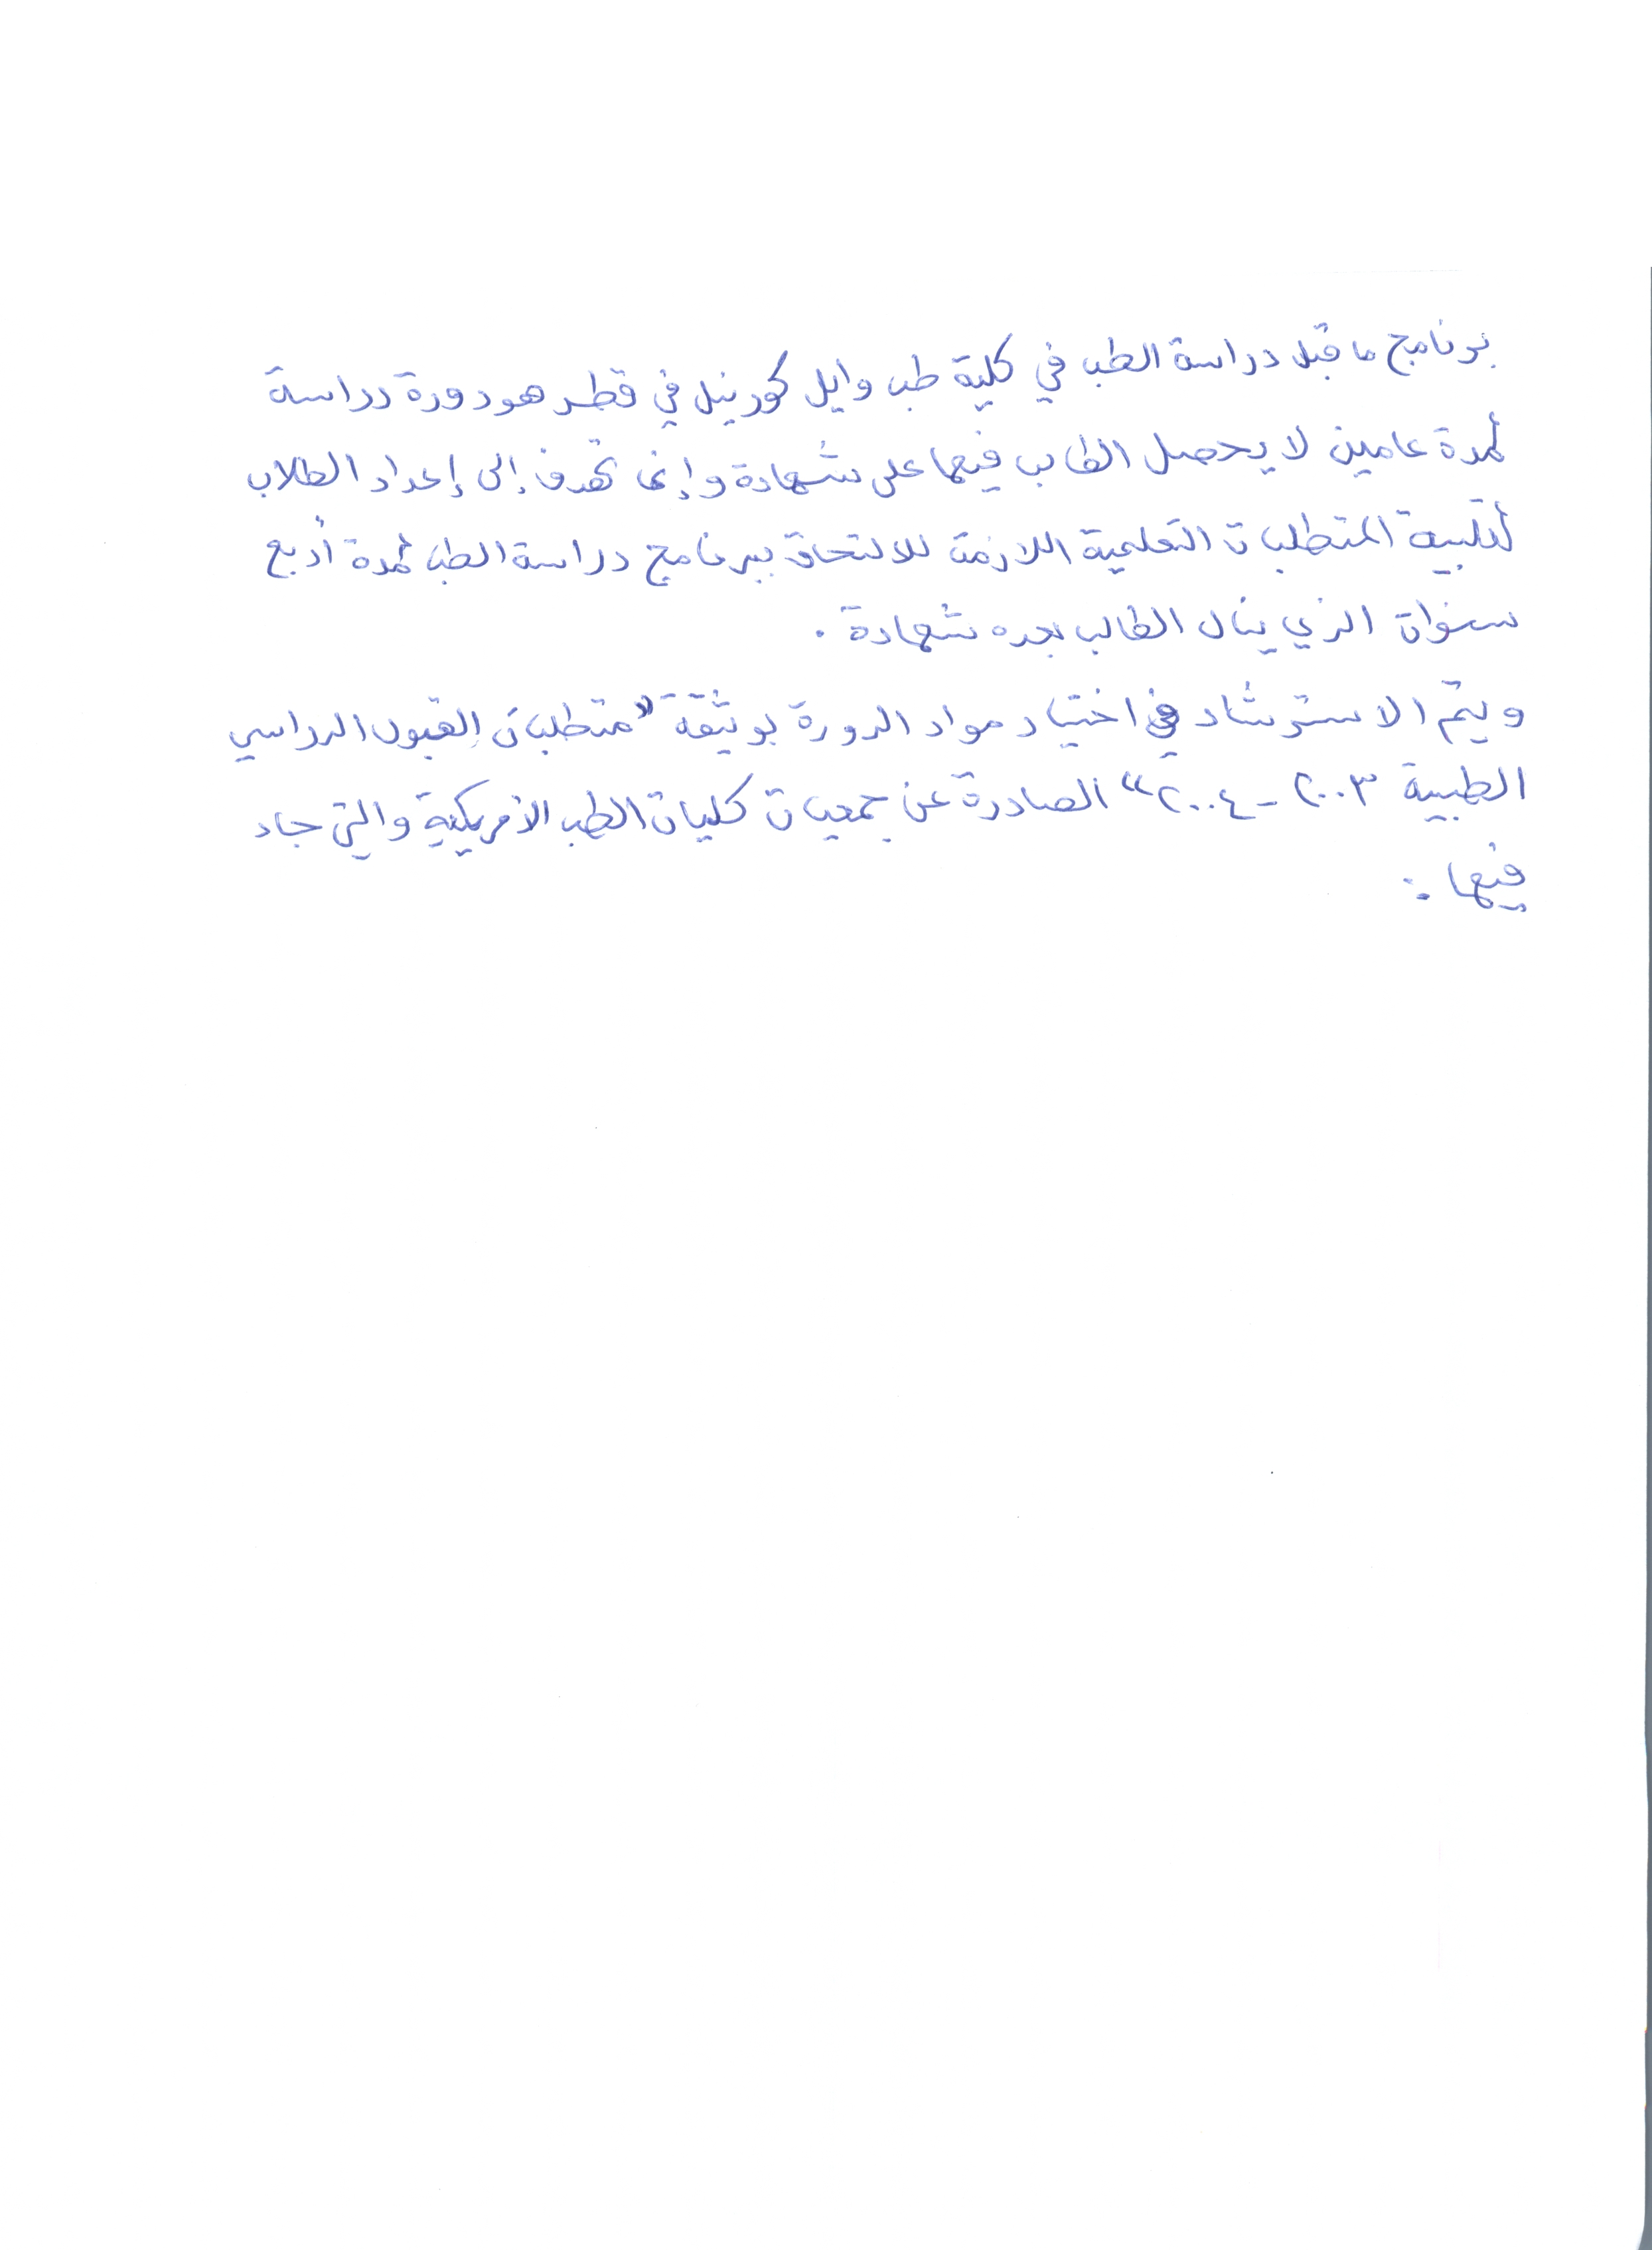 برنامج ما قبل دراسة الطب في كلية طب وايل كورنيل في قطر هو دورة دراسة
لمدة عامين لا يحصل الطالب فيها على شهادة وإنما تهدف إلى إعداد الطلاب
لتلبية المتطلبات التعلمية اللازمة للالتحاق ببرنامج دراسة الطب لمدة أربع
سنوات الذي ينال الطالب بعده شهادة .
ويتم الاسترشاد في اختيار مواد الدورة بوثيقة "متطلبات القبول الدراسي
الطبية ٢٠٠٣ - ٢٠٠٤" الصادرة عن جمعيات كليات الطب الأمريكية والتي جاء
فيها :